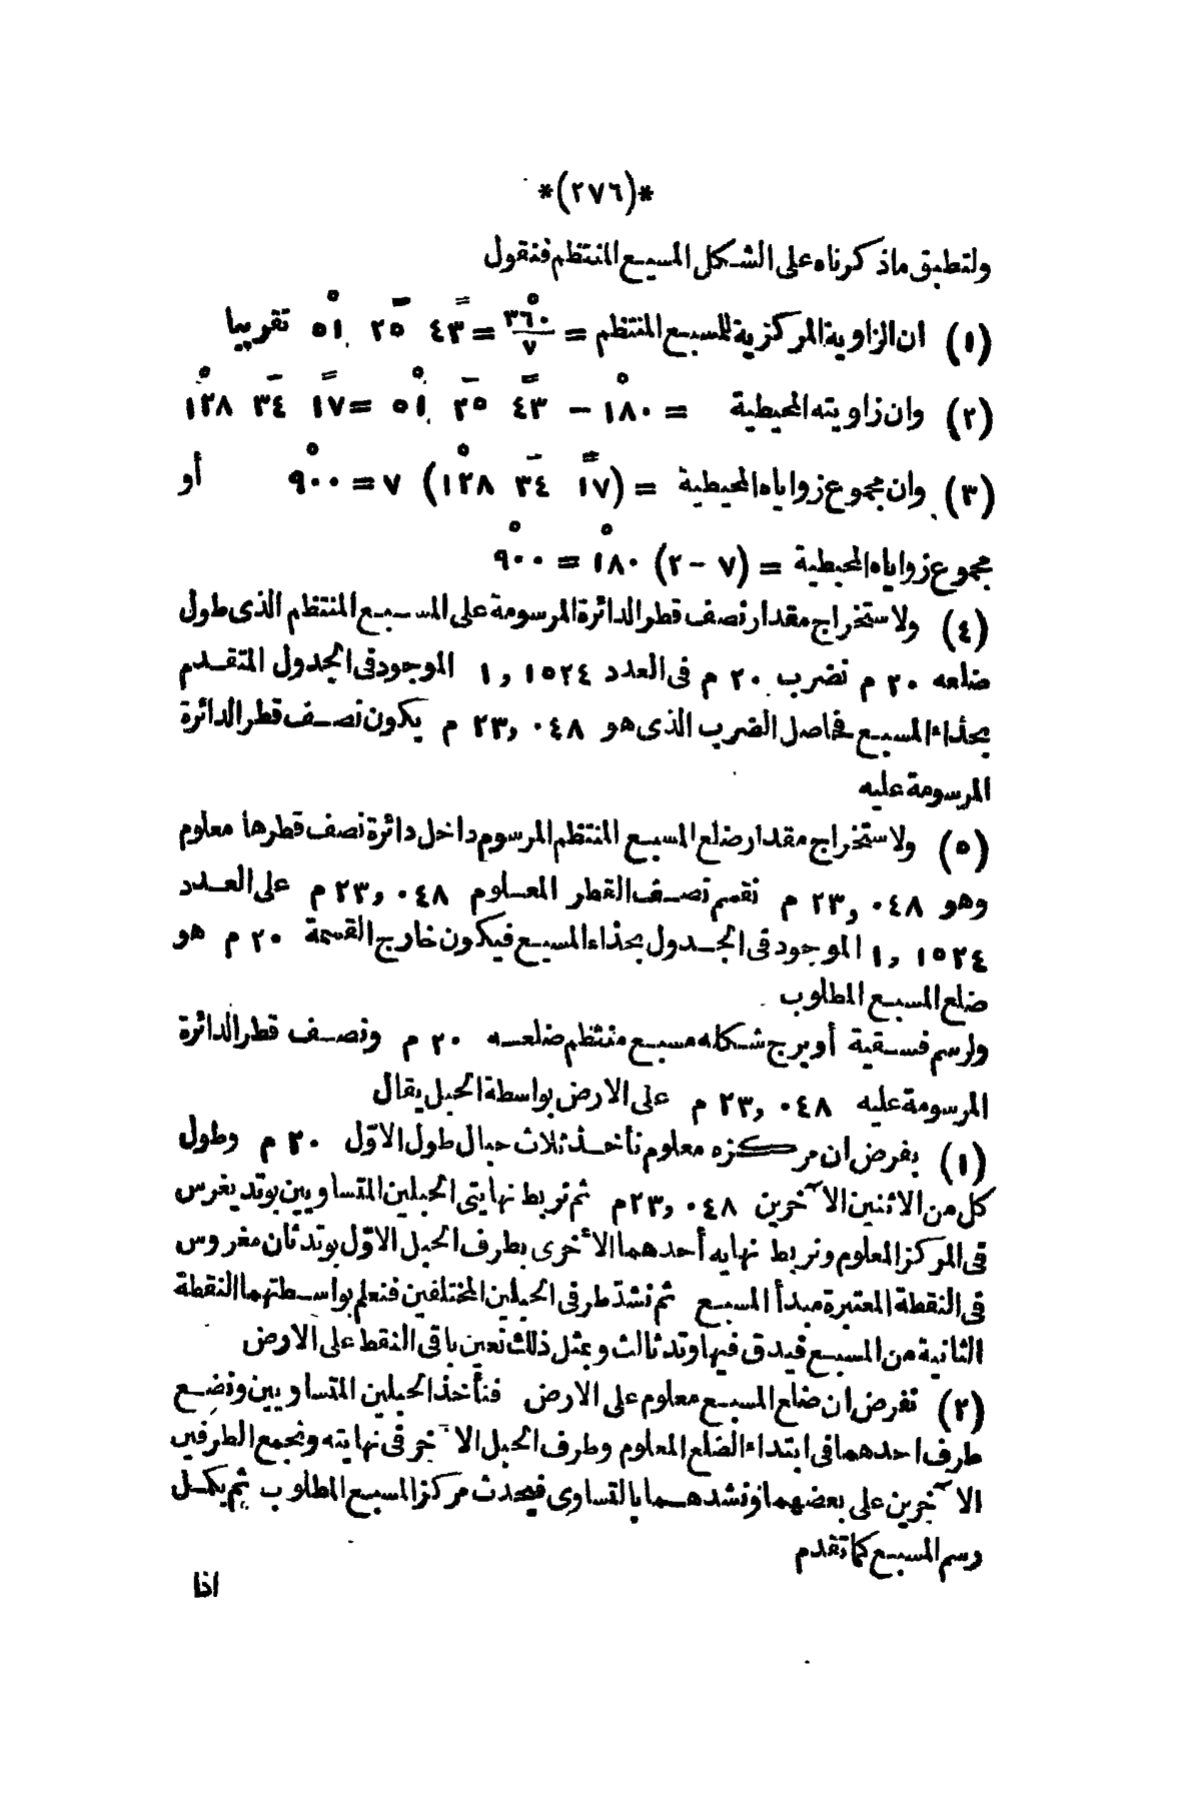 *(٢٧٦)*
ولتطبق ماذكرناه على الشكل المسبع المنتظم فنقول
(١) ان الزاوية المركزية للمسبع المنتظم = ٣٦٠°/٧ = ٤٣̿ ٢٥̄ ٥١° تقريبا
(٢) وان زاويته المحيطية = ١٨٠° − ٤٣̿ ٢٥̄ ٥١° = ١٧̿ ٣٤̄ ١٢٨°
(٣) وان مجموع زواياه المحيطية = (١٧̿ ٣٤̄ ١٢٨°) ٧ = ٩٠٠° أو
مجموع زواياه المحيطية = (٧ − ٢) ١٨٠° = ٩٠٠°
(٤) ولاستخراج مقدار نصف قطر الدائرة المرسومة على المسبع المنتظم الذى طول
ضلعه ٢٠ م نضرب ٢٠ م فى العدد ١,١٥٢٤ الموجود فى الجدول المتقدم
بحذاء المسبع فحاصل الضرب الذى هو ٢٣,٠٤٨ م يكون نصف قطر الدائرة
المرسومة عليه
(٥) ولاستخراج مقدار ضلع المسبع المنتظم المرسوم داخل دائرة نصف قطرها معلوم
وهو ٢٣,٠٤٨ م نقسم نصف القطر المعلوم ٢٣,٠٤٨ م على العدد
١,١٥٢٤ الموجود فى الجدول بحذاء المسبع فيكون خارج القسمة ٢٠ م هو
ضلع المسبع المطلوب
ولرسم فسقية أوبرج شكله مسبع منتظم ضلعه ٢٠ م ونصف قطر الدائرة
المرسومة عليه ٢٣,٠٤٨ م على الارض بواسطة الحبل يقال
(١) بفرض ان مركزه معلوم نأخذ ثلاث حبال طول الاوّل ٢٠ م وطول
كل من الاثنين الآخرين ٢٣,٠٤٨ م ثم نربط نهايتى الحبلين المتساويين بوتد يغرس
فى المركز المعلوم ونربط نهاية أحدهما الأخرى بطرف الحبل الاوّل بوتد ثان مغروس
فى النقطة المعتبرة مبدأ المسبع ثم نشدّ طرفى الحبلين المختلفين فنعلم بواسطتهما النقطة
الثانية من المسبع فيدق فيها وتد ثالث وبمثل ذلك تعين باقى النقط على الارض
(٢) نفرض ان ضلع المسبع معلوم على الارض فنأخذ الحبلين المتساويين ونضع
طرف احدهما فى ابتداء الضلع المعلوم وطرف الحبل الآخر فى نهايته ونجمع الطرفين
الآخرين على بعضهما ونشدهما بالتساوى فيحدث مركز المسبع المطلوب ثم يكمل
رسم المسبع كما تقدم
اذا